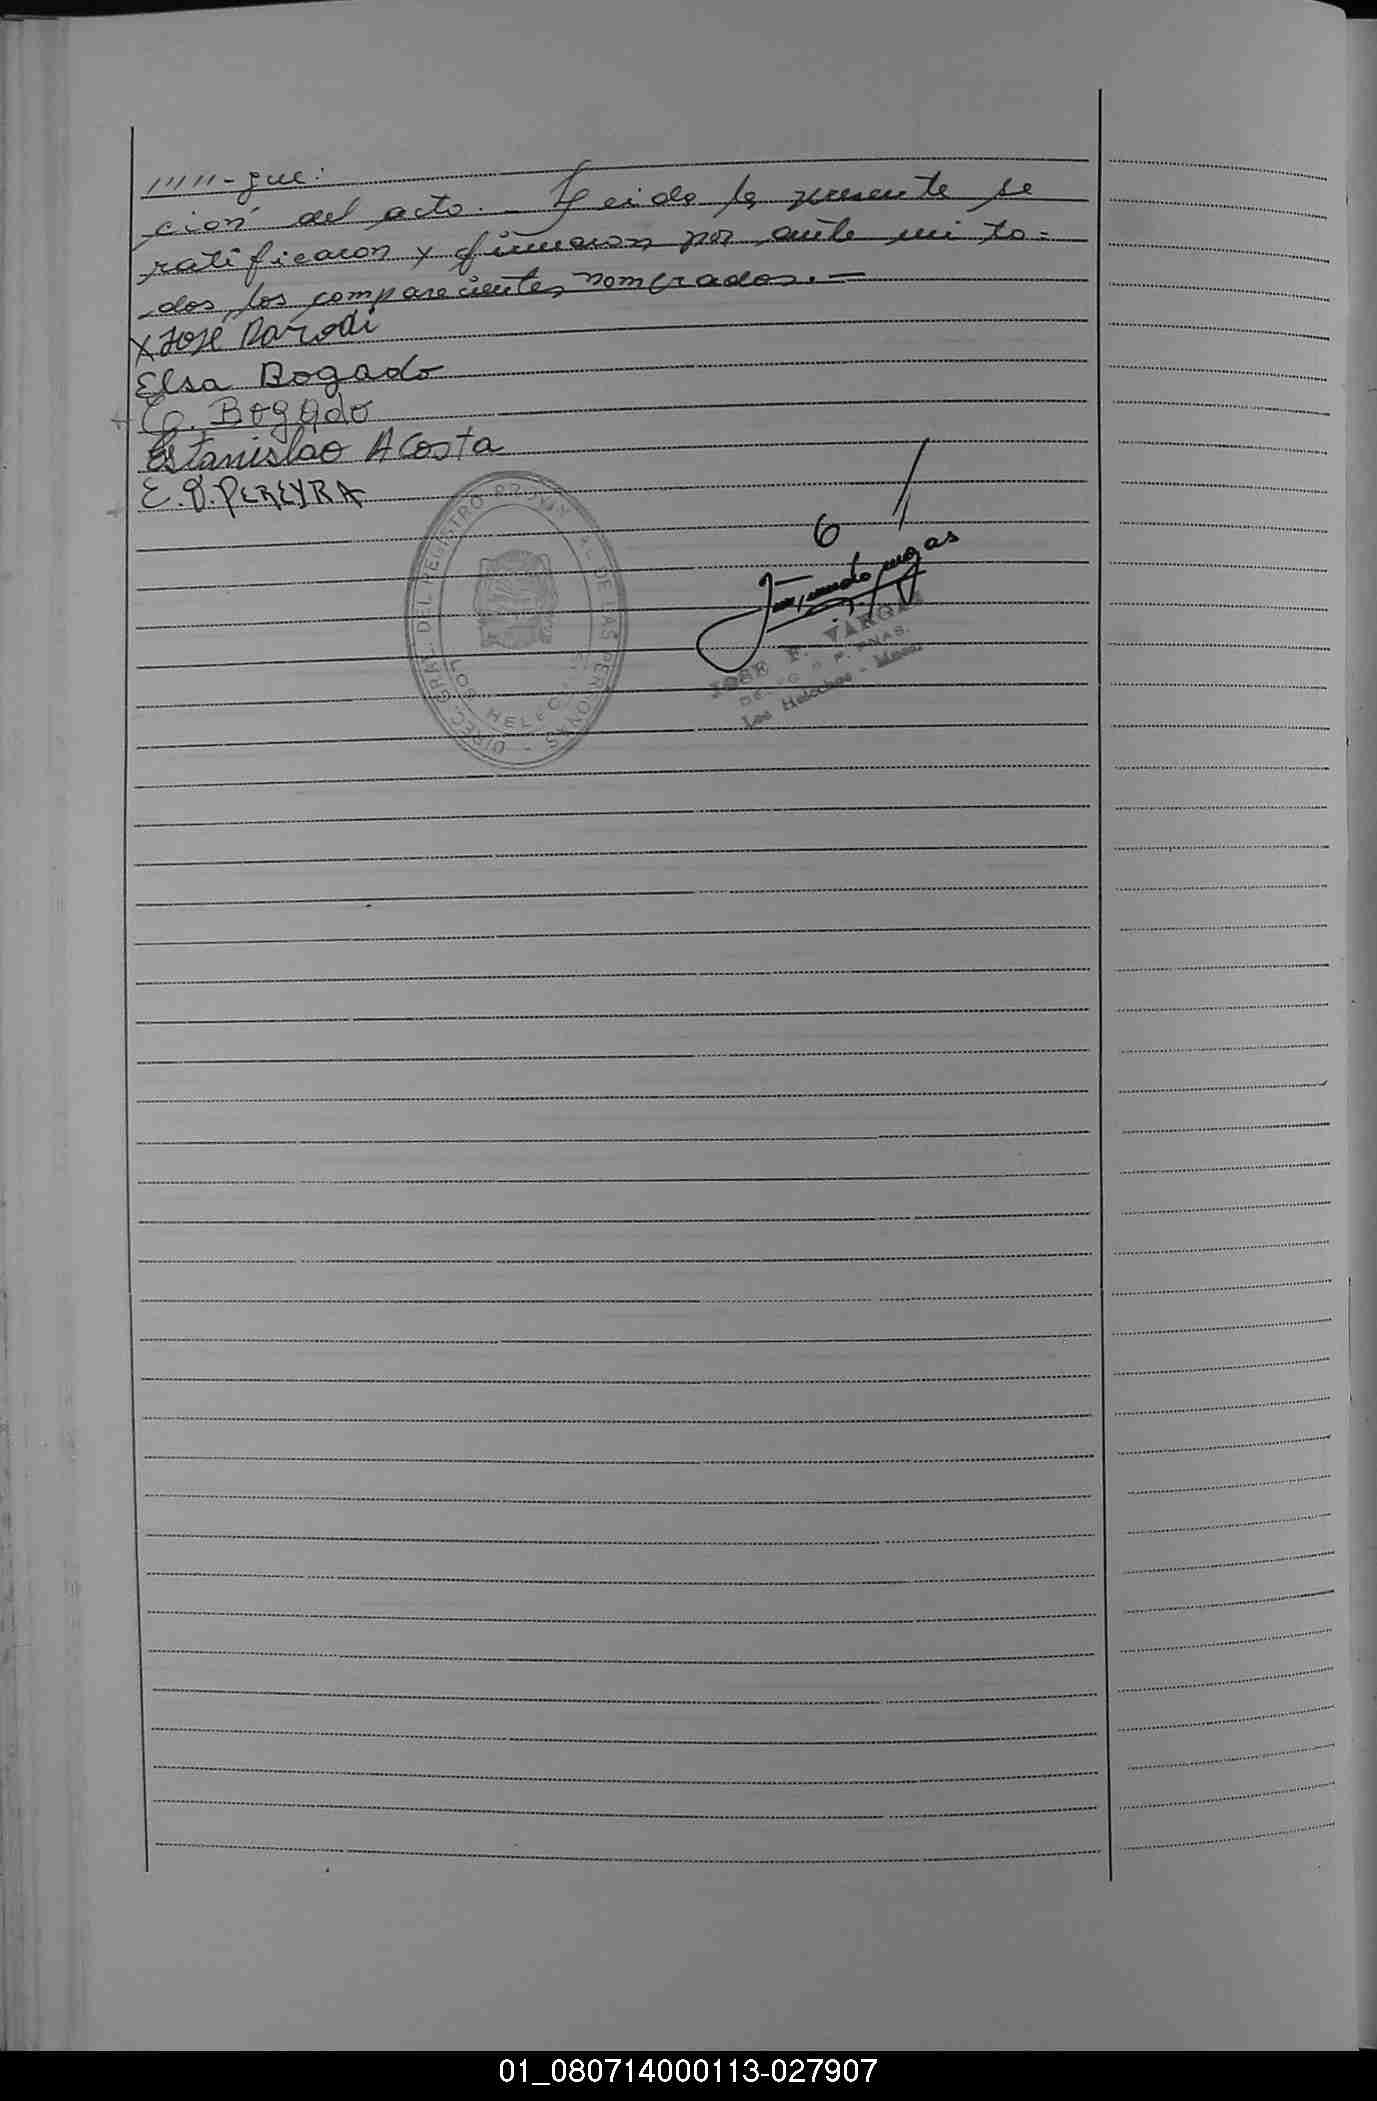 """-gue:
ción del acto.- Leida la presente se
ratificaron y firmaron por ante mi to=
dos, los comparecientes nombrados.-
x José Parodi
Elsa Bogado
Bogado
Estanislao Acosta
E. D. PEREYRA
DIREC. GRAL. DEL REGISTRO PROVINCIAL DE LAS PERSONAS -
LOS HELECHOS
6
JOSE F. VARGAS
Los Helechos - Mnes.
01_080714000113-027907